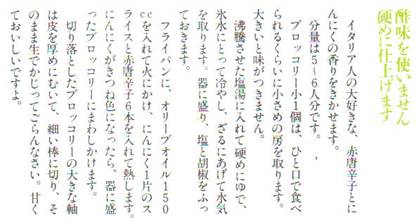 酢味を使いません
硬めに仕上げます
イタリア人の大好きな、赤唐辛子とに
んにくの香りをきかせます。
分量は5～6人分です。
ブロッコリー小1個は、ひと口で食べ
られるくらいに小さめの房を取ります。
大きいと味がつきません。
沸騰させた塩湯に入れて硬めにゆで、
氷水にとって冷やし、ざるにあげて水気
を取ります。器に盛り、塩と胡椒をふっ
ておきます。
フライパンに、オリーブオイル150
ccを入れて火にかけ、にんにく1片のス
ライスと赤唐辛子6本を入れて熱します。
にんにくがきつね色になったら、器に盛
ったブロッコリーにまわしかけます。
切り落としたブロッコリーの大きな軸
は皮を厚めにむいて、細い棒に切り、そ
のまま生でかじってごらんなさい。甘く
ておいしいですよ。